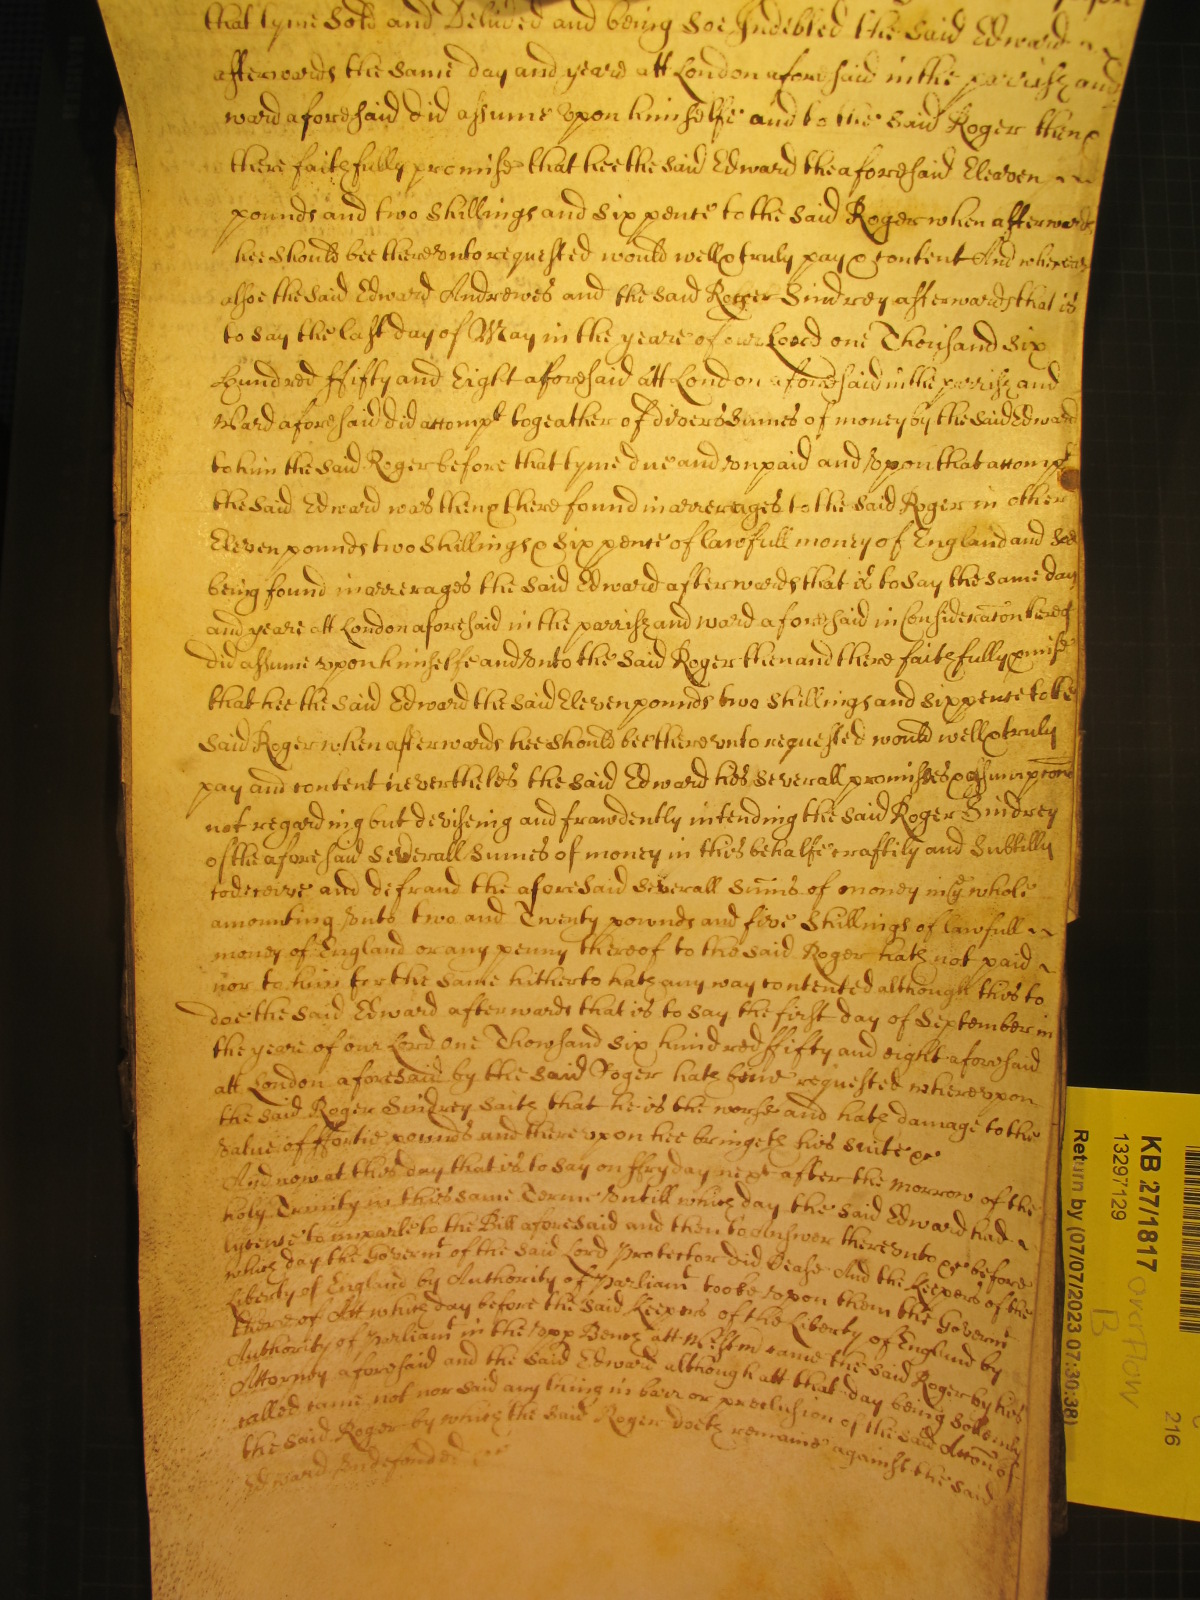 that tyme sold and Delivred and being soe Indebted the said Edward
afterwards the same day and yeare att London aforesaid in the parrish and
ward aforesaid did assume upon himselfe and to the said Roger then &
there faithfully promise that hee the said Edward the aforesaid Eleaven
pounds and two shillings and six pence to the said Roger when afterwards
hee should bee thereunto requested would well & truly pay & content And whereas
alsoe the said Edward Andrewes and the said Roger Sindrey afterwards that is
to say the last day of May in the yeare of our Lord one Thousand six
hundred ffifty and Eight aforesaid att London aforesaid in the parrish and
Ward aforesaid did accompt togeather of divers sumes of money by the said Edward
to him the said Roger before that tyme due and unpaid and upon that accompt
the said Edward was then & there found in arrerages to the said Roger in other
Eleven pounds two shillings & six pence of lawfull money of England and soe
being found in arrerages the said Edward afterwards that is to say the same day
and yeare att London aforesaid in the parrish and ward aforesaid in Consideracon thereof
did assume upon himselfe and unto the said Roger then and there faithfully pmise
that hee the said Edward the said Eleven pounds two shillings and six pence to the
said Roger when afterwards hee should bee thereunto requested would well & truly
pay and content neverthelesse the said Edward his severall promisses & assumpcons
not regarding but deviseing and frawdently intending the said Roger Sindrey
of the aforesaid severall sumes of money in this behalfe craftily and subtilly
to deceive and defraud the aforesaid severall sums of money in ye whole
amounting unto two and Twenty pownds and five shillings of lawfull
money of England or any penny thereof to the said Roger hath not paid
nor to him for the same hitherto hath any way contented although this to
doe the said Edward afterwards that is to say the first day of September in
the yeare of our Lord one Thowsand six hundred ffifty and eight aforesaid
att London aforesaid by the said Roger hath bene requested whereupon
the said Roger Sindrey saith that he is the worse and hath damage to the
value of ffortie pounds and thereupon hee bringeth his suite &c
And now at this day that is to say on ffryday next after the morrow of the
holy Trinity in this same Terme untill which day the said Edward had
lycence to imparle to the Bill aforesaid and then to answer thereunto &c before
which day the Governmt of the said Lord Protector did Cease And the Keepers of the
Liberty of England by Authority of Parliamt tooke upon them the Governmt
thereof Att which day before the said Keepers of the Liberty of England by
Authority of Parliamt in the upp Bench att Westm came the said Roger by his
Attorney aforesaid and the said Edward although att that day being sollemnly
called came not nor said any thing in barr or preclusion of the said Accon of
the said Roger by which the said Roger doeth remaine against the said
Edward undefended &c
KB 27/1817
13297129
Return by (07/07/2023 07:30:38)
overflow
B
216